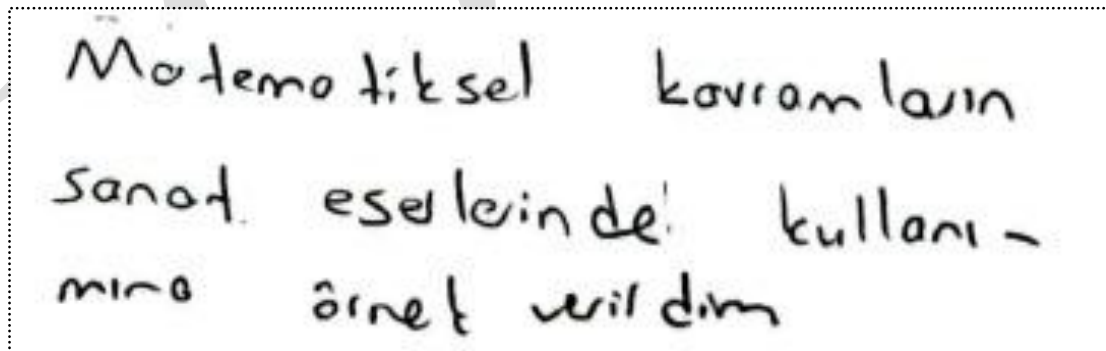 Matematiksel kavramların
sanat eserlerinde kullanı-
mına örnek verildim